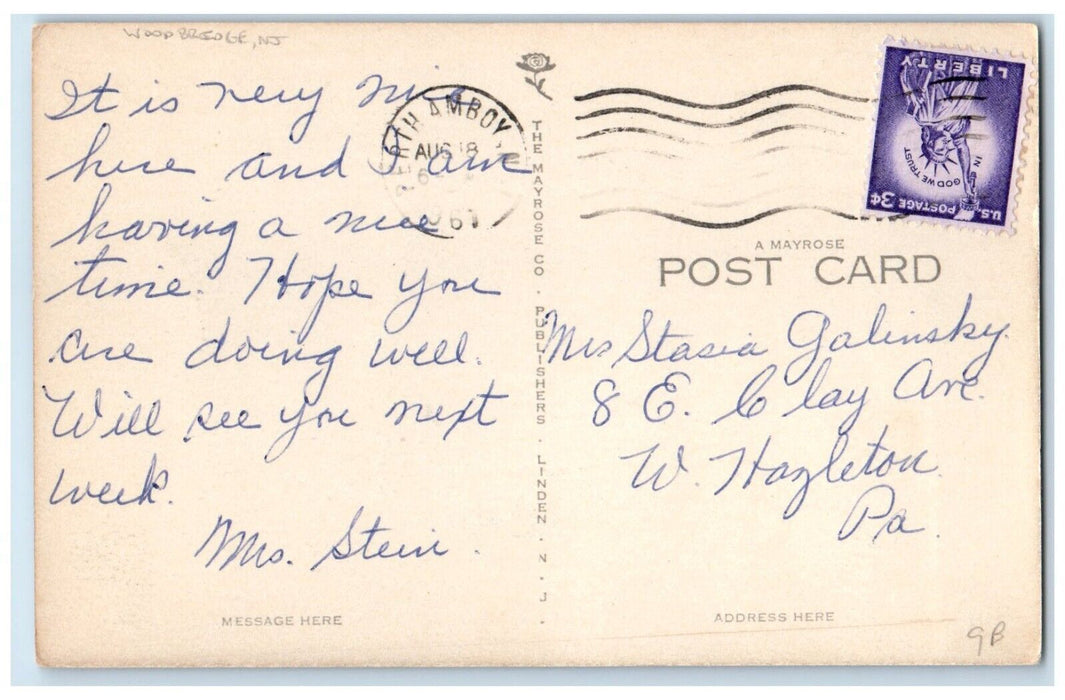 WOODBRIDGE, NJ
It is very nice
here and I am
having a nice
time. Hope you
are doing well.
Will see you next
week.
Mrs. Stein.
MESSAGE HERE
TH AMBOY
AUG 18
1961
THE MAYROSE CO. PUBLISHERS. LINDEN. N. J.
LIBERTY
IN
GOD WE TRUST
U.S. POSTAGE 3¢
A MAYROSE
POST CARD
Mrs Stasia Galinsky.
8 E. Clay Ave.
W. Hazleton
Pa.
ADDRESS HERE
9B